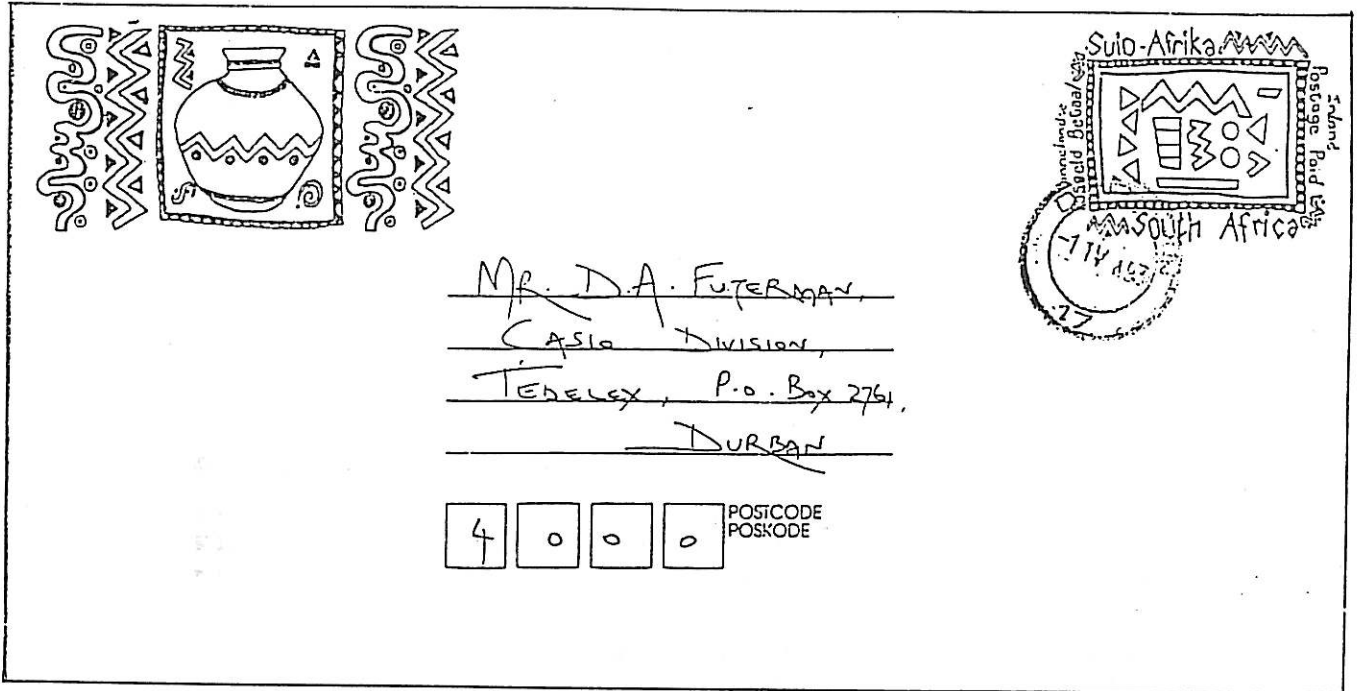 Suid-Afrika
Binnelandse
Posgeld Betaal
Inland
Postage Paid
South Africa
Mr. D.A. FUTERMAN,
CASIO DIVISION,
TEDELEX, P.O. Box 2761,
DURBAN
4 0 0 0
POSTCODE
POSKODE